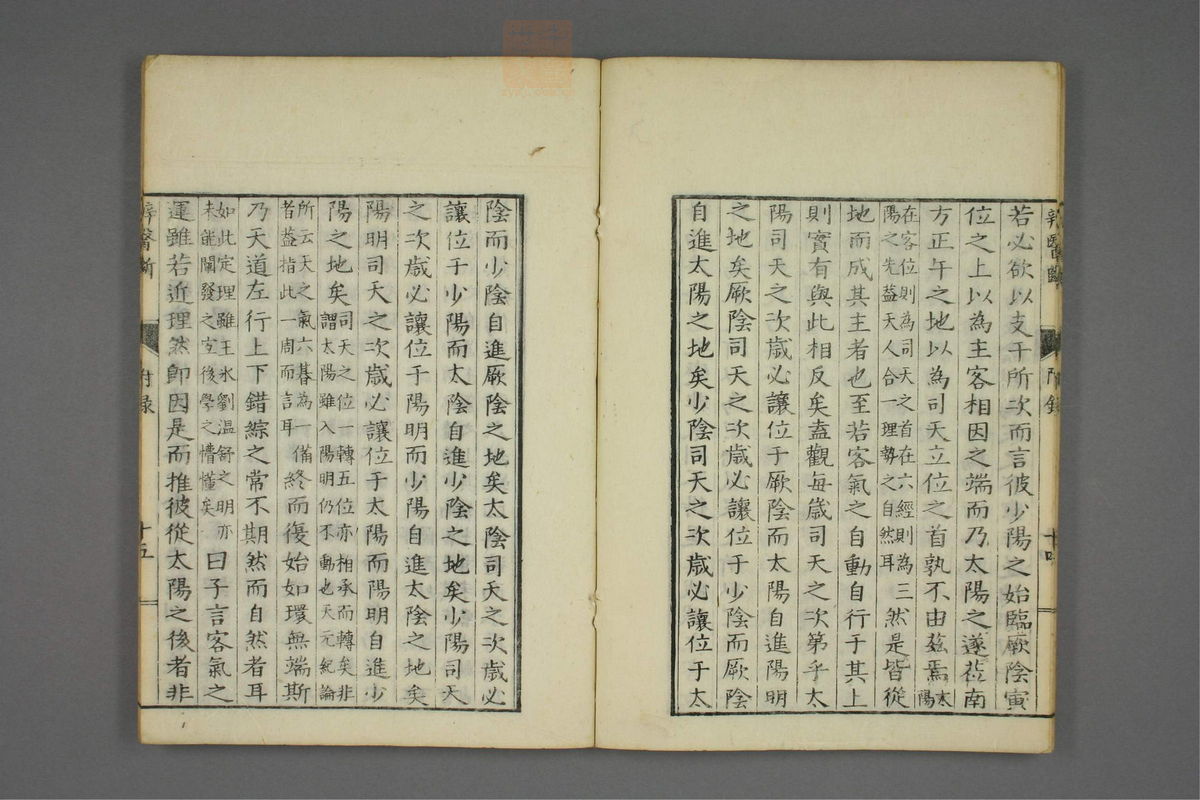 若必欲以支干所次而言彼少陽之始臨厥陰寅
位之上以為主客相因之端而乃太陽之遂莅南
方正午之地以為司天立位之首孰不由茲焉太陽
在客位則為司天之首在六經則為三
陽之先蓋天人合一理勢之自然耳
然是皆從
地而成其主者也至若客氣之自動自行于其上
則實有與此相反矣盍觀每歲司天之次第乎太
陽司天之次歲必讓位于厥陰而太陽自進陽明
之地矣厥陰司天之次歲必讓位于少陰而厥陰
自進太陽之地矣少陰司天之次歲必讓位于太
附錄
十四
陰而少陰自進厥陰之地矣太陰司天之次歲必
讓位于少陽而太陰自進少陰之地矣少陽司天
之次歲必讓位于陽明而少陽自進太陰之地矣
陽明司天之次歲必讓位于太陽而陽明自進少
陽之地矣
司天之位一轉五位亦相承而轉矣非
謂太陽雖入陽明仍不動也天元紀論
所云天之氣六朞為一備
者蓋指此一周而言耳
終而復始如環無端斯
乃天道左行上下錯綜之常不期然而自然者耳
如此定理雖王氷劉溫舒之明亦
未能闡發之宜後學之懵懂矣
曰子言客氣之
運雖若近理然卽因是而推彼從太陽之後者非
醫斷
附錄
十五